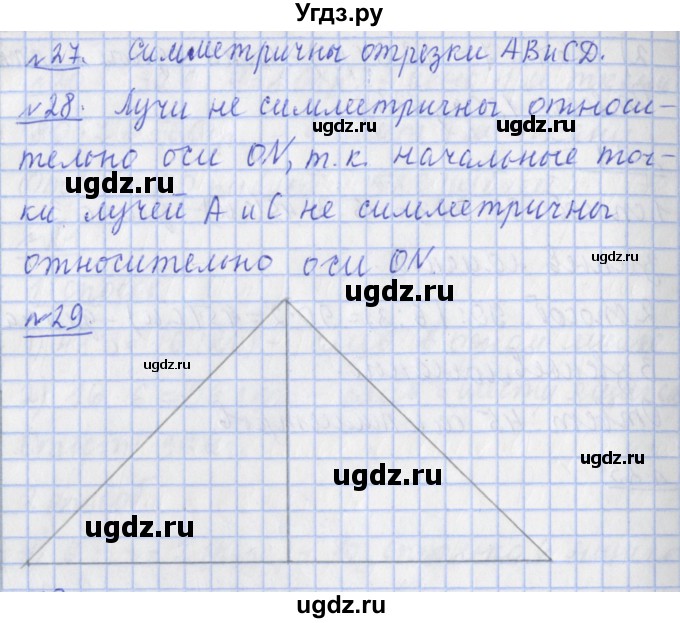 Угдз.ру
№27. Симметричны отрезки AB и CD.
№28. Лучи не симметричны относи-
ugdz.ru ugdz.ru
тельно оси ON, т.к. начальные точ-
ugdz.ru
ки лучей A и C не симметричны
относительно оси ON.
ugdz.ru
ugdz.ru
№29.
ugdz.ru
ugdz.ru
ugdz.ru
ugdz.ru
ugdz.ru